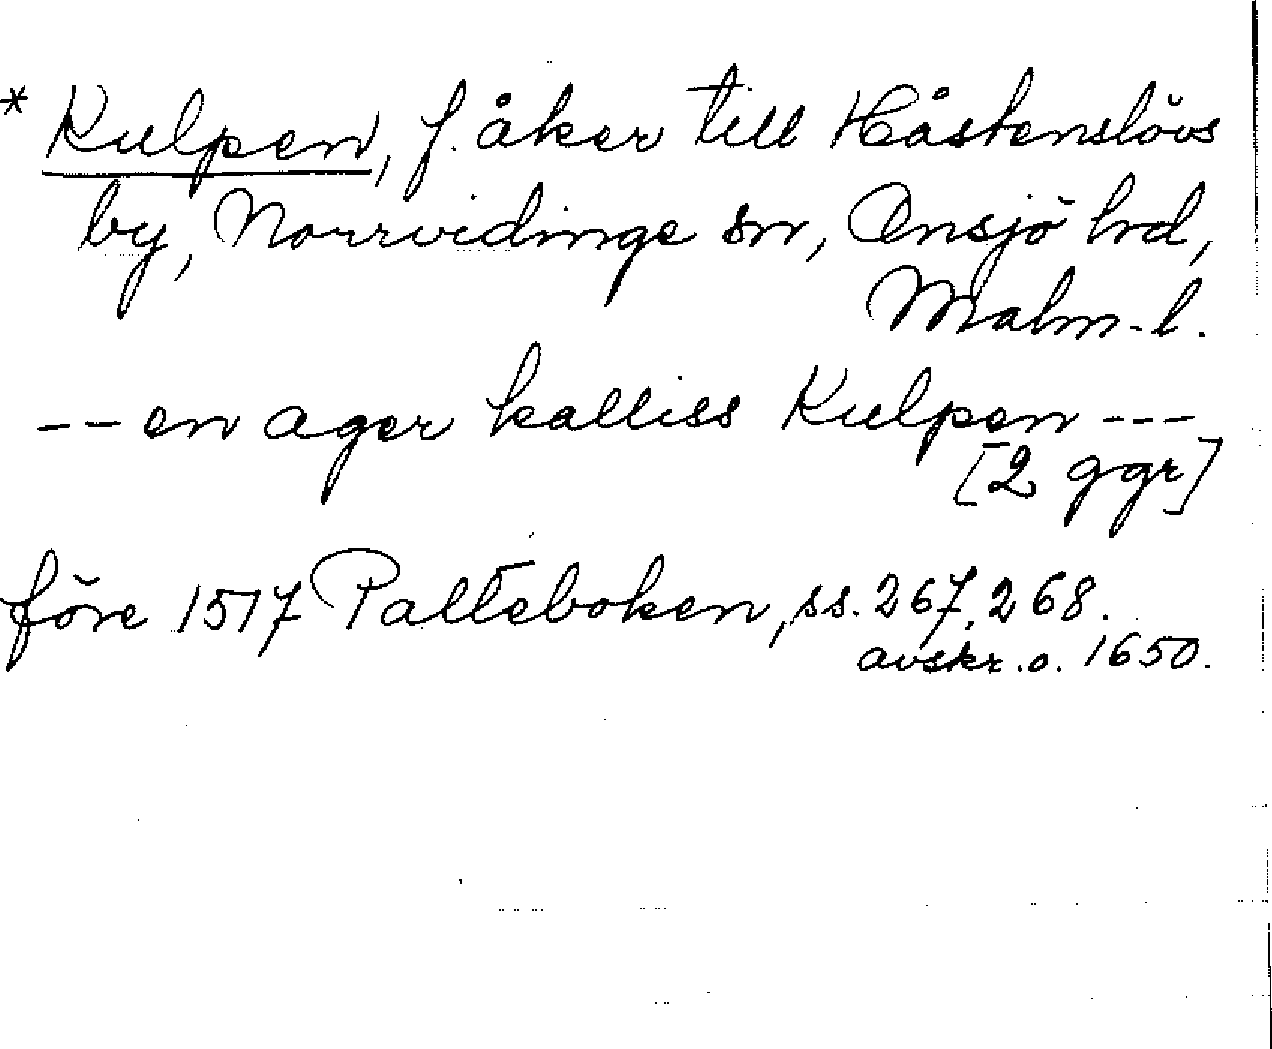 * Kulpen, f. åker till Håstenslövs
by, Norrvidinge sn, Onsjö hd,
Malm-l.
-- en ager kalliss Kulpen ---
[2 ggr]
före 1517 Palteboken, ss. 267, 268.
avskr. o. 1650.